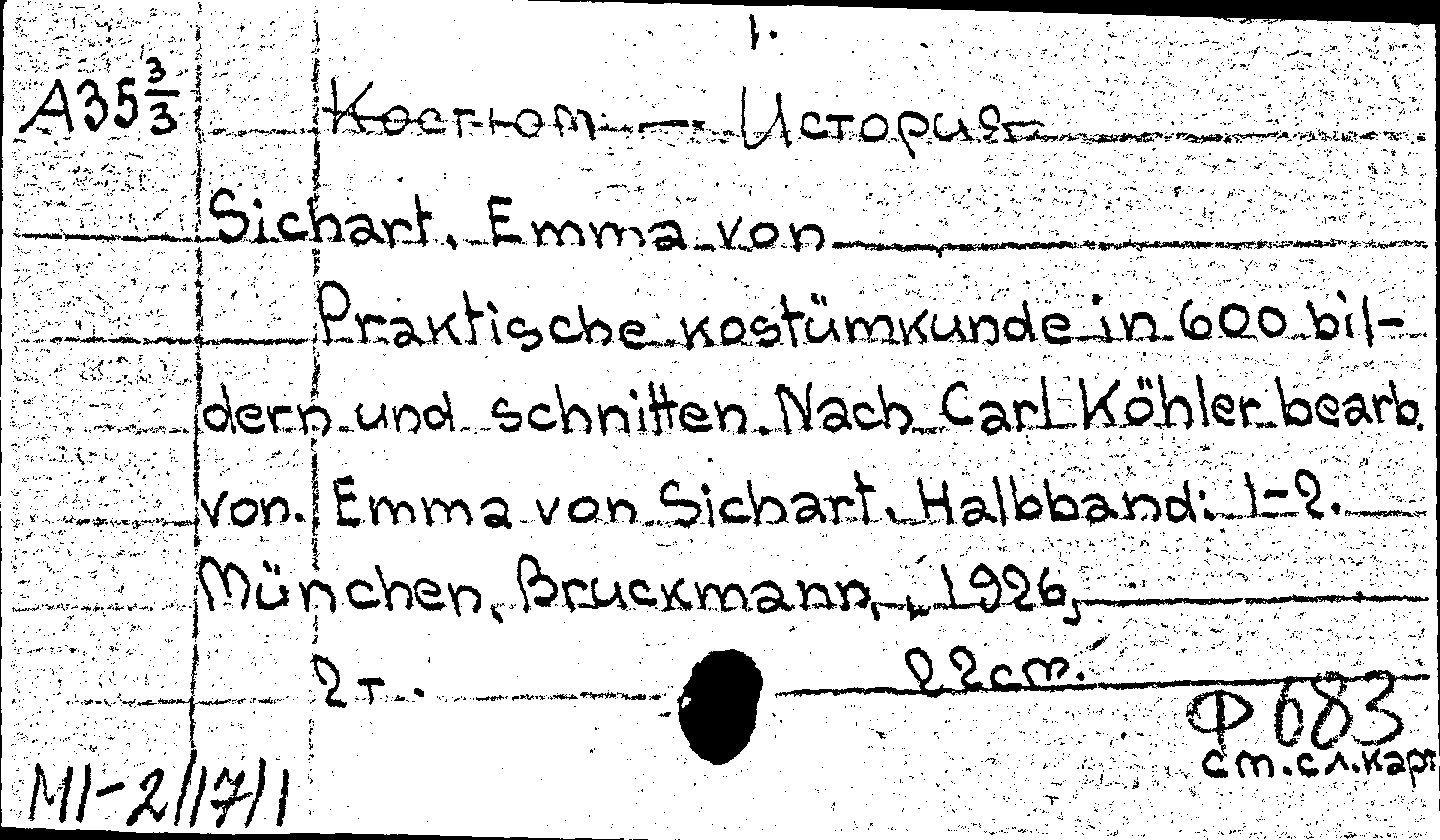 1.
А35 3/3 Костюм — История
Sichart, Emma von
Praktische kostümkunde in 600 bil-
dern und schnitten. Nach Carl Köhler bearb.
von. Emma von Sichart. Halbband: 1-2.
München, Bruckmann, 1926,
2 т. 22cm.
Ф 683
см.сл.карт
М1-2/17/1